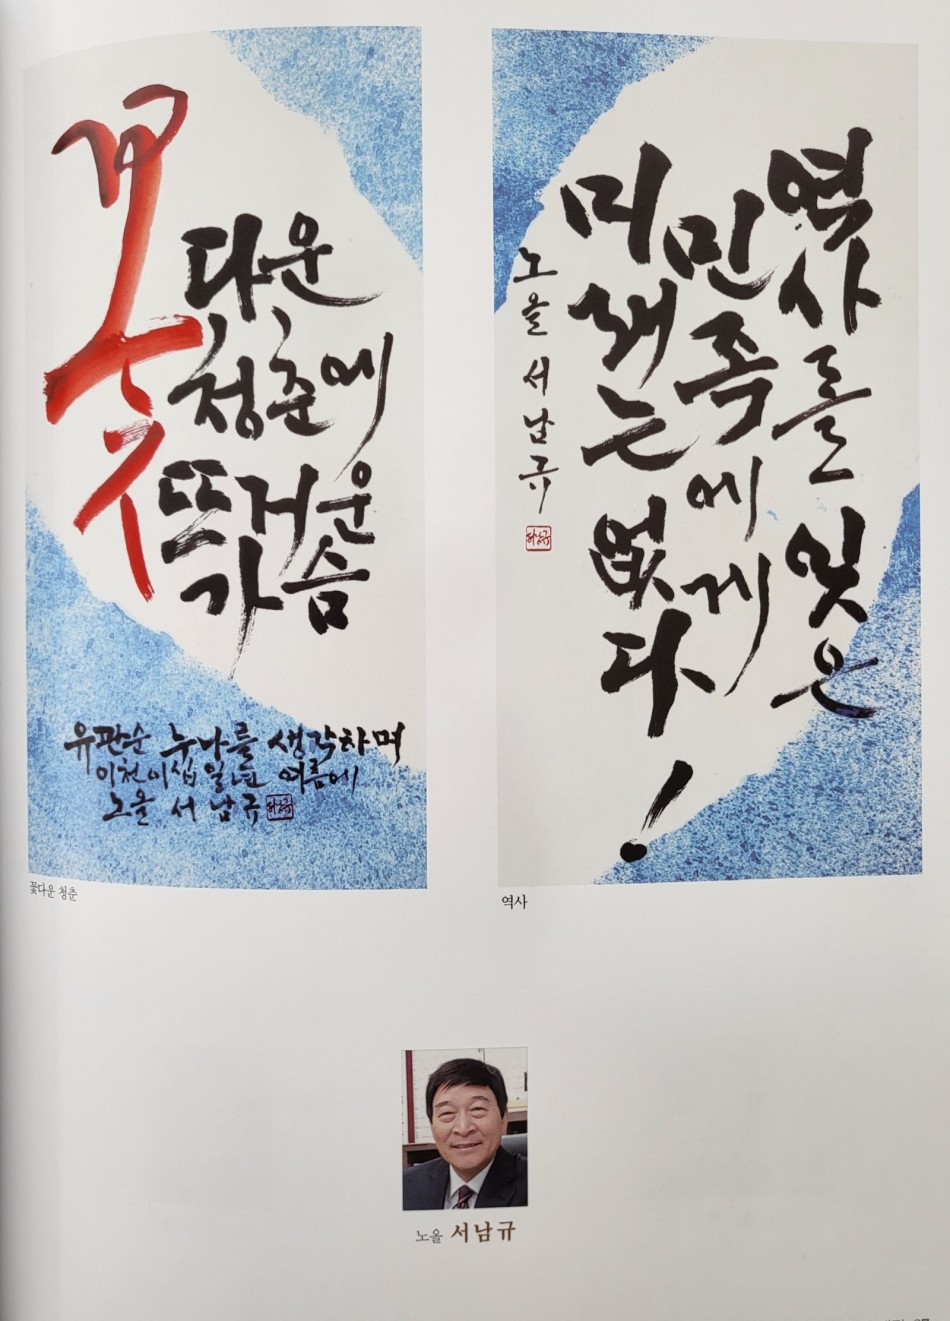 꽃다운
청춘에
뜨거운
가슴
유관순 누나를 생각하며
이천이십일년 여름에
노을 서남규
꽃다운 청춘
역사를 잊은
민족에게
미래는 없다!
노을 서남규
역사
노을 서남규